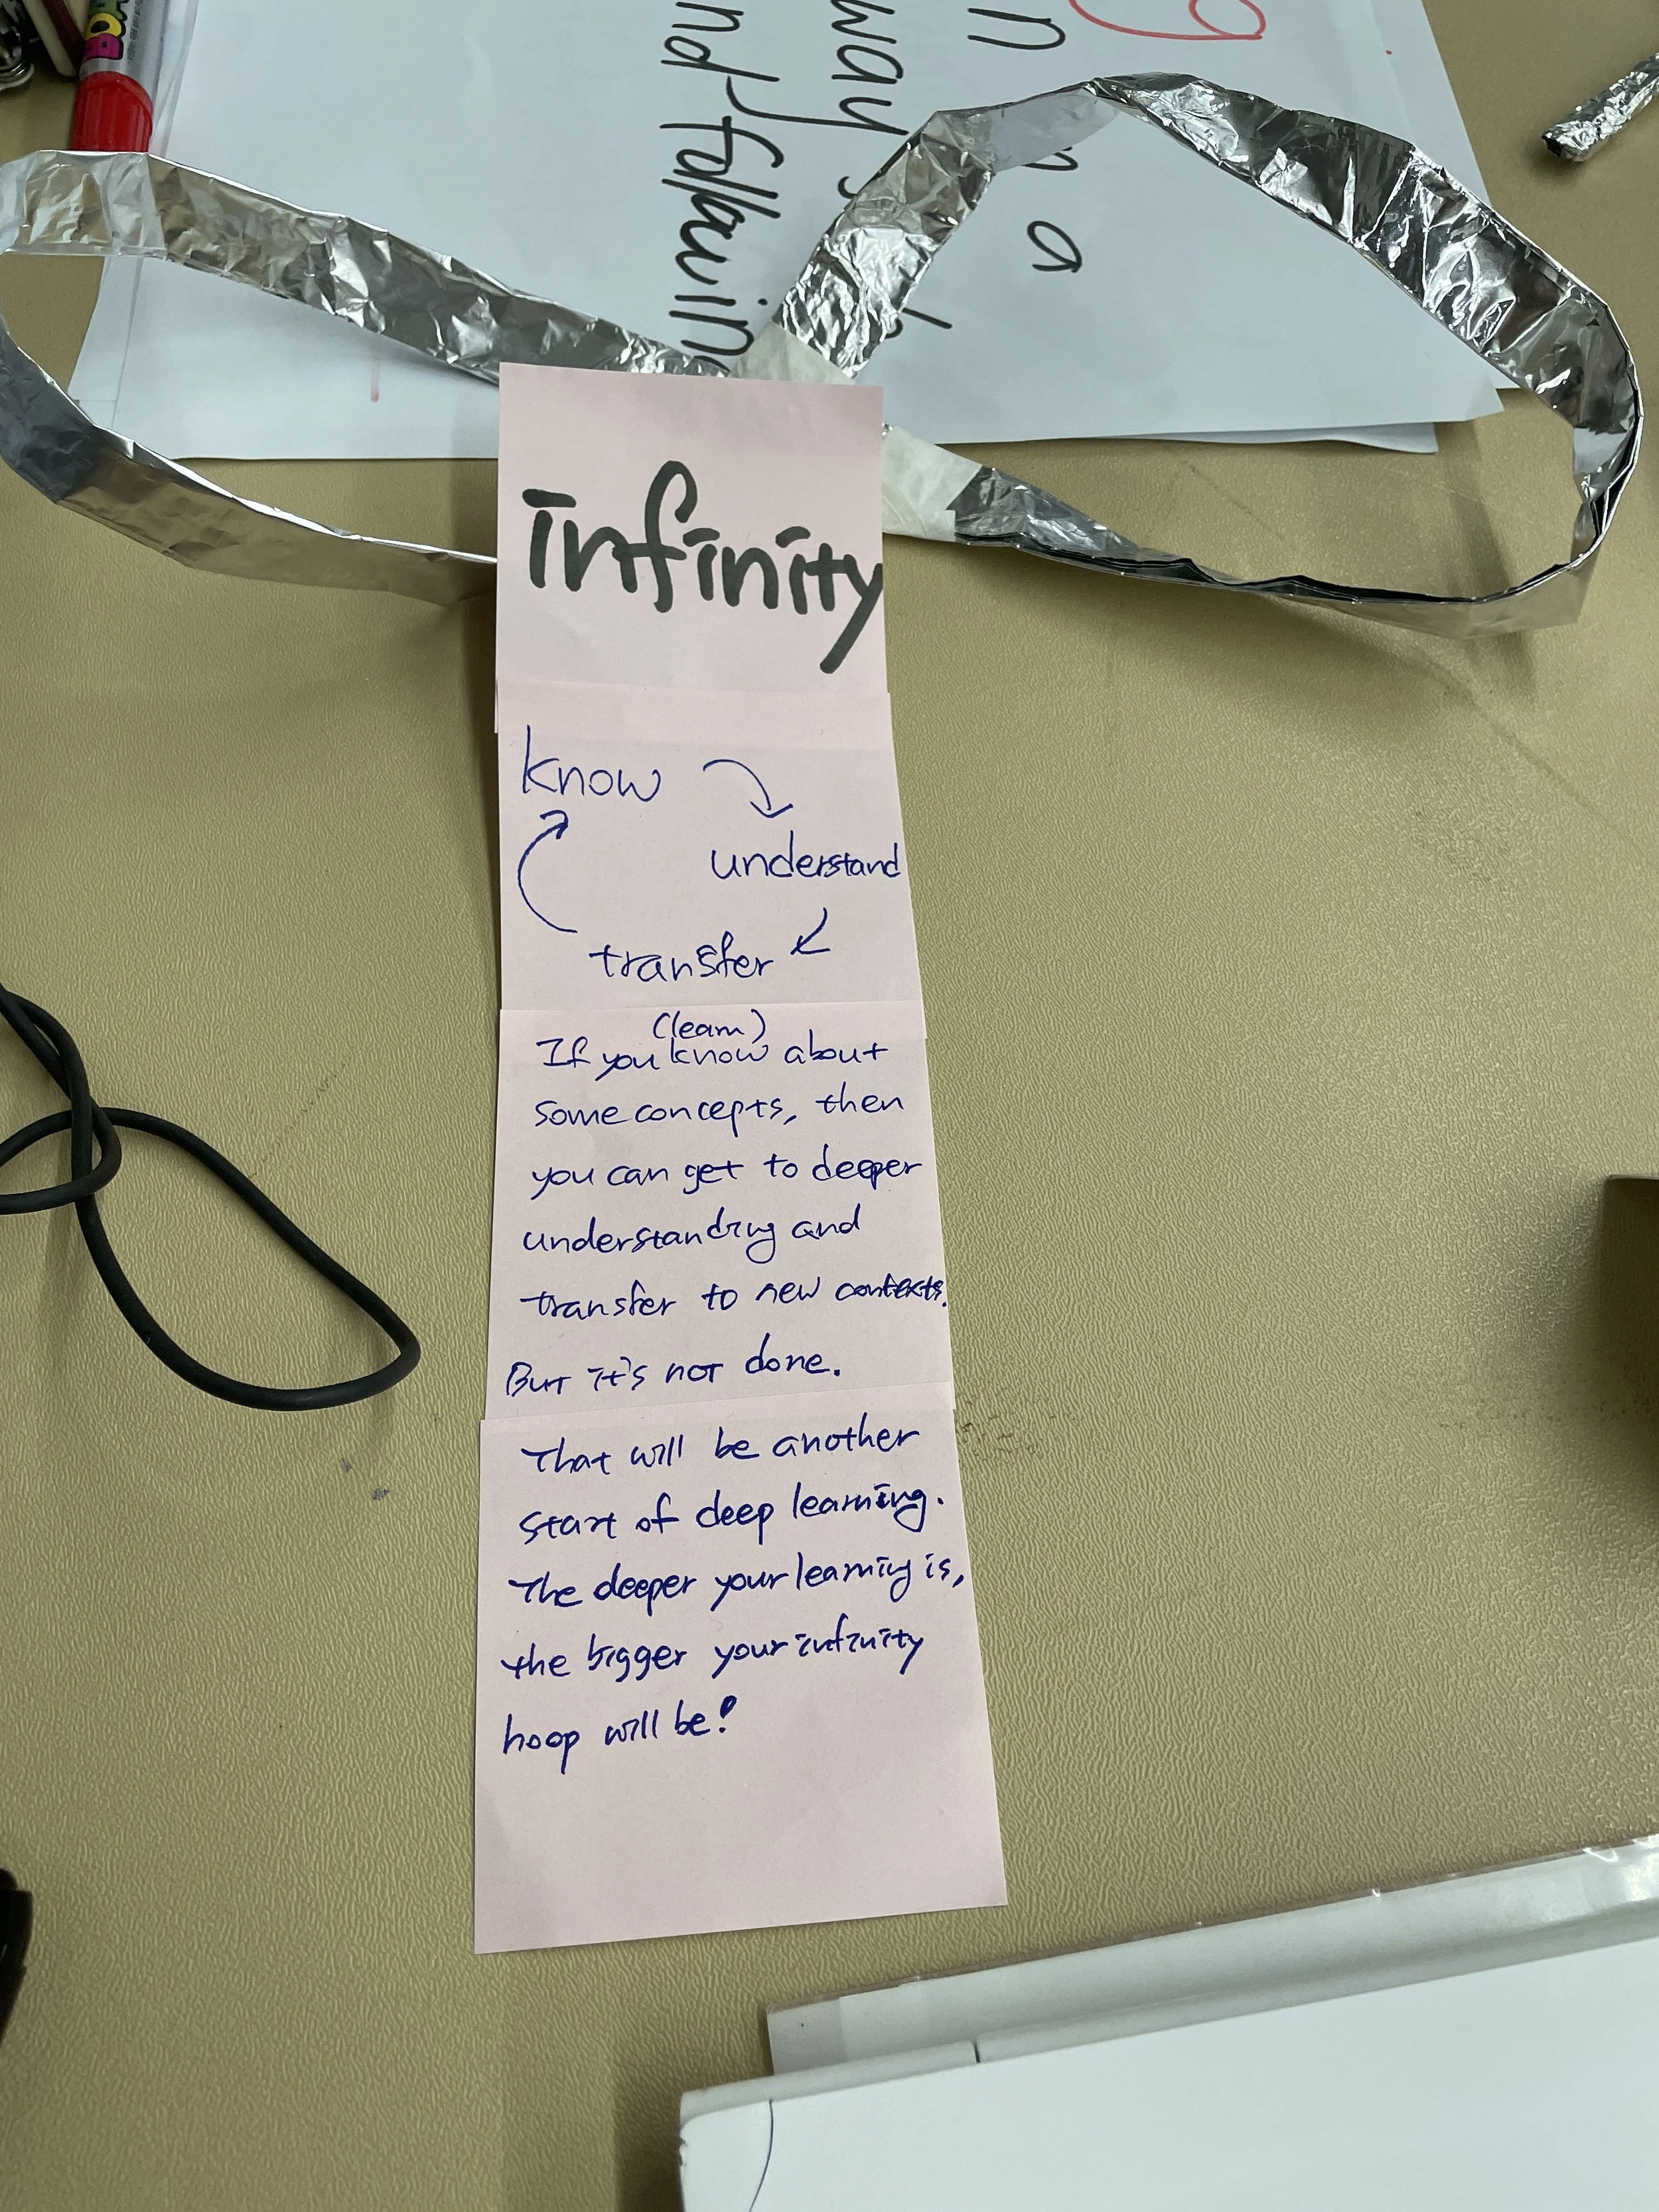 g
n
n a
way
nd following
infinity
know
understand
transfer
(learn)
If you know about
some concepts, then
you can get to deeper
understanding and
transfer to new contexts.
But it's not done.
That will be another
start of deep learning.
The deeper your learning is,
the bigger your infinity
hoop will be!